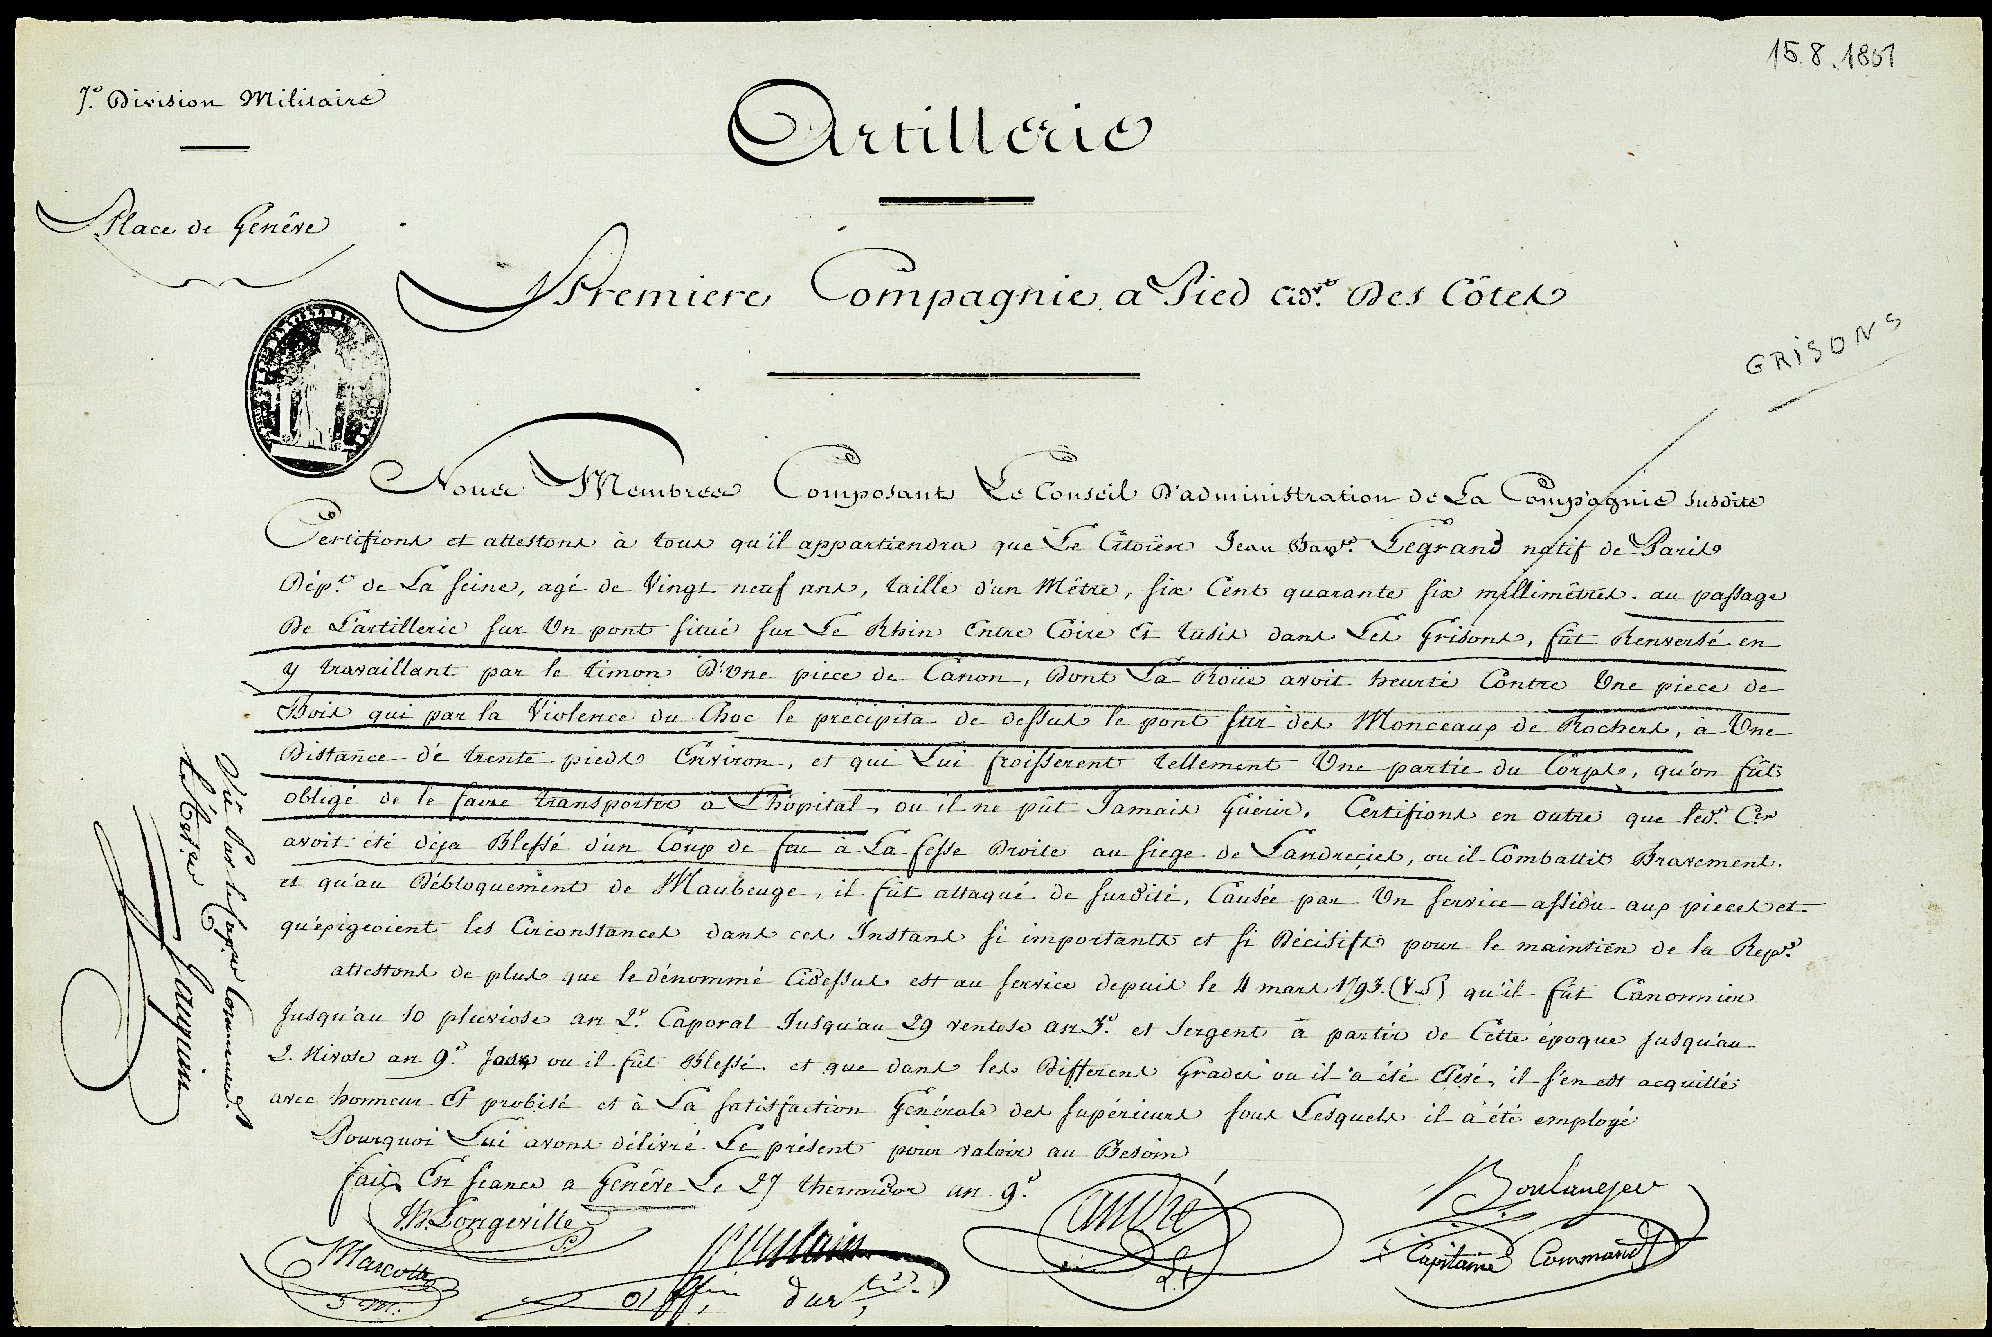 15.8.1801
7.e Division Militaire
Artillerie
Place de Genêve
Premiere Compagnie a Pied cidt. Des Côtes
GRISONS
Nous Membres Composant Le Conseil D'administration de La Compagnie susdite
Certifions et attestons à tous qu'il appartiendra que Le Citoïen Jean Bapt. Legrand natif de Paris
Dépt. de La Seine, agé de Vingt neuf ans, taille d'un Mêtre, Six Cent quarante Six millimêtres. au passage
De L'artillerie sur Un pont situé sur Le Rhin Entre Coire Et tusis dans Les Grisons, fût Renversé en
y travaillant par le timon D'Une piece de Canon, Dont La Roüe avoit heurté Contre Une piece de
Bois qui par la Violence du Choc le précipita de dessus le pont sur des Monceaux de Rochers, à Une
Distance de trente pieds Environ, et qui Lui froisserent tellement Une partie du Corps, qu'on fût
obligé de le faire transporter a L'hôpital, ou il ne pût Jamais Guérir. Certifions en outre que led.t C.en
avoit été déja Blessé d'un Coup de feu à La fesse Droite au siege de Landrecies, ou il Combattit Bravement.
et qu'au Débloquement de Maubeuge, il fût attaqué de surdité, Causée par Un service assidu aux pieces et
qu'éxigeoient les Circonstances dans ces Instans si importants et si Décisifs pour le maintien de la Repe.
attestons de plus que le dénommé Cidessus est au service depuis le 4 mars 1793. (V.S) qu'il fût Canonnier
Jusqu'au 10 pluviose an 2.e Caporal Jusqu'au 29 ventose an 3.e et Sergent à partir de Cette époque jusqu'au
2. Nivose an 9.e Jour ou il fût Blessé. et que dans les Differens Grades ou il a été Elevé, il s'en est acquitté
avec honneur Et probité et à La satisfaction Générale des supérieurs sous Lesquels il à été employé
Pourquoi Lui avons délivré Le présent pour valoir au Besoin
fait En séance a Genêve Le 27 thermidor an 9.e
Vû Par le Cap.ne Commandt.
Jacquin
M. Longeville
Marcotte
S M.
Poulain
Offi.
André
Lt
Boulanger
Capitaine Command.t